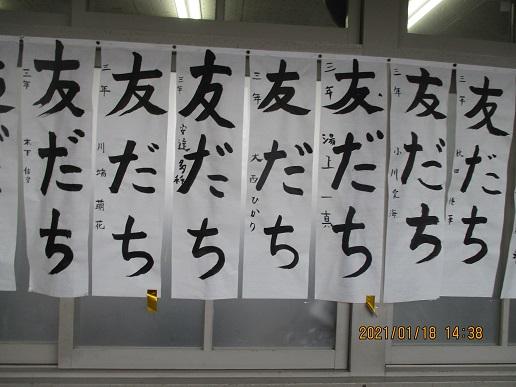 友だち
三年
木下
友だち
三年 川端 萌花
友だち
三年 安達
友だち
三年 大西ひかり
友だち
三年 上一真
友だち
三年 小川愛海
友だち
三年 秋田
2021/01/18 14:38